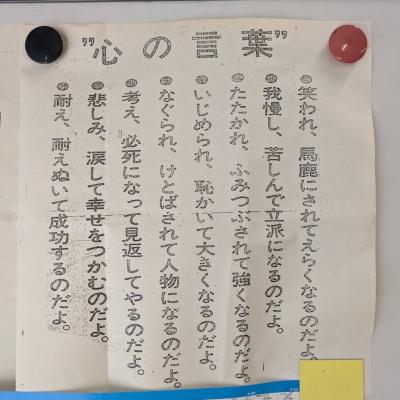 "心の言葉"
笑われ、馬鹿にされてえらくなるのだよ。
我慢し、苦しんで立派になるのだよ。
たたかれ、ふみつぶされて強くなるのだよ。
いじめられ、恥かいて大きくなるのだよ。
なぐられ、けとばされて人物になるのだよ。
考え、必死になって見返してやるのだよ。
悲しみ、涙して幸せをつかむのだよ。
耐え、耐えぬいて成功するのだよ。